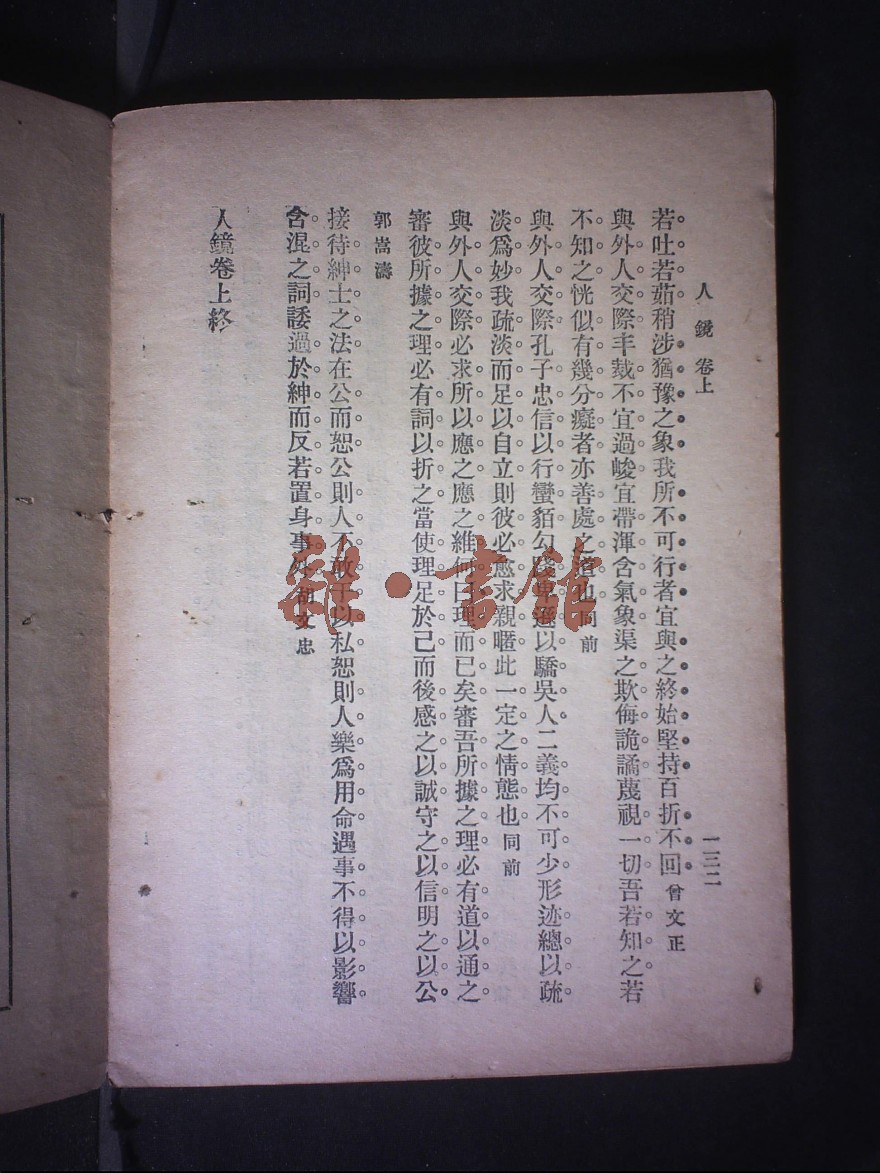 人鏡 卷上 一三二
若吐若茹稍涉猶豫之象我所不可行者宜與之終始堅持百折不回 曾文正
與外人交際丰裁不宜過峻宜帶渾含氣象渠之欺侮詭譎蔑視一切吾若知之若
不知之恍似有幾分癡者亦善處之道也 同前
與外人交際孔子忠信以行蠻貊勾踐卑遜以驕吳人二義均不可少形迹總以疏
淡爲妙我疏淡而足以自立則彼必愈求親暱此一定之情態也 同前
與外人交際必求所以應之應之維何曰理而已矣審吾所據之理必有道以通之
審彼所據之理必有詞以折之當使理足於己而後感之以誠守之以信明之以公
郭嵩濤
接待紳士之法在公而恕公則人不敢干以私恕則人樂爲用命遇事不得以影響
含混之詞諉過於紳而反若置身事外 胡文忠
人鏡卷上終
雜·書館